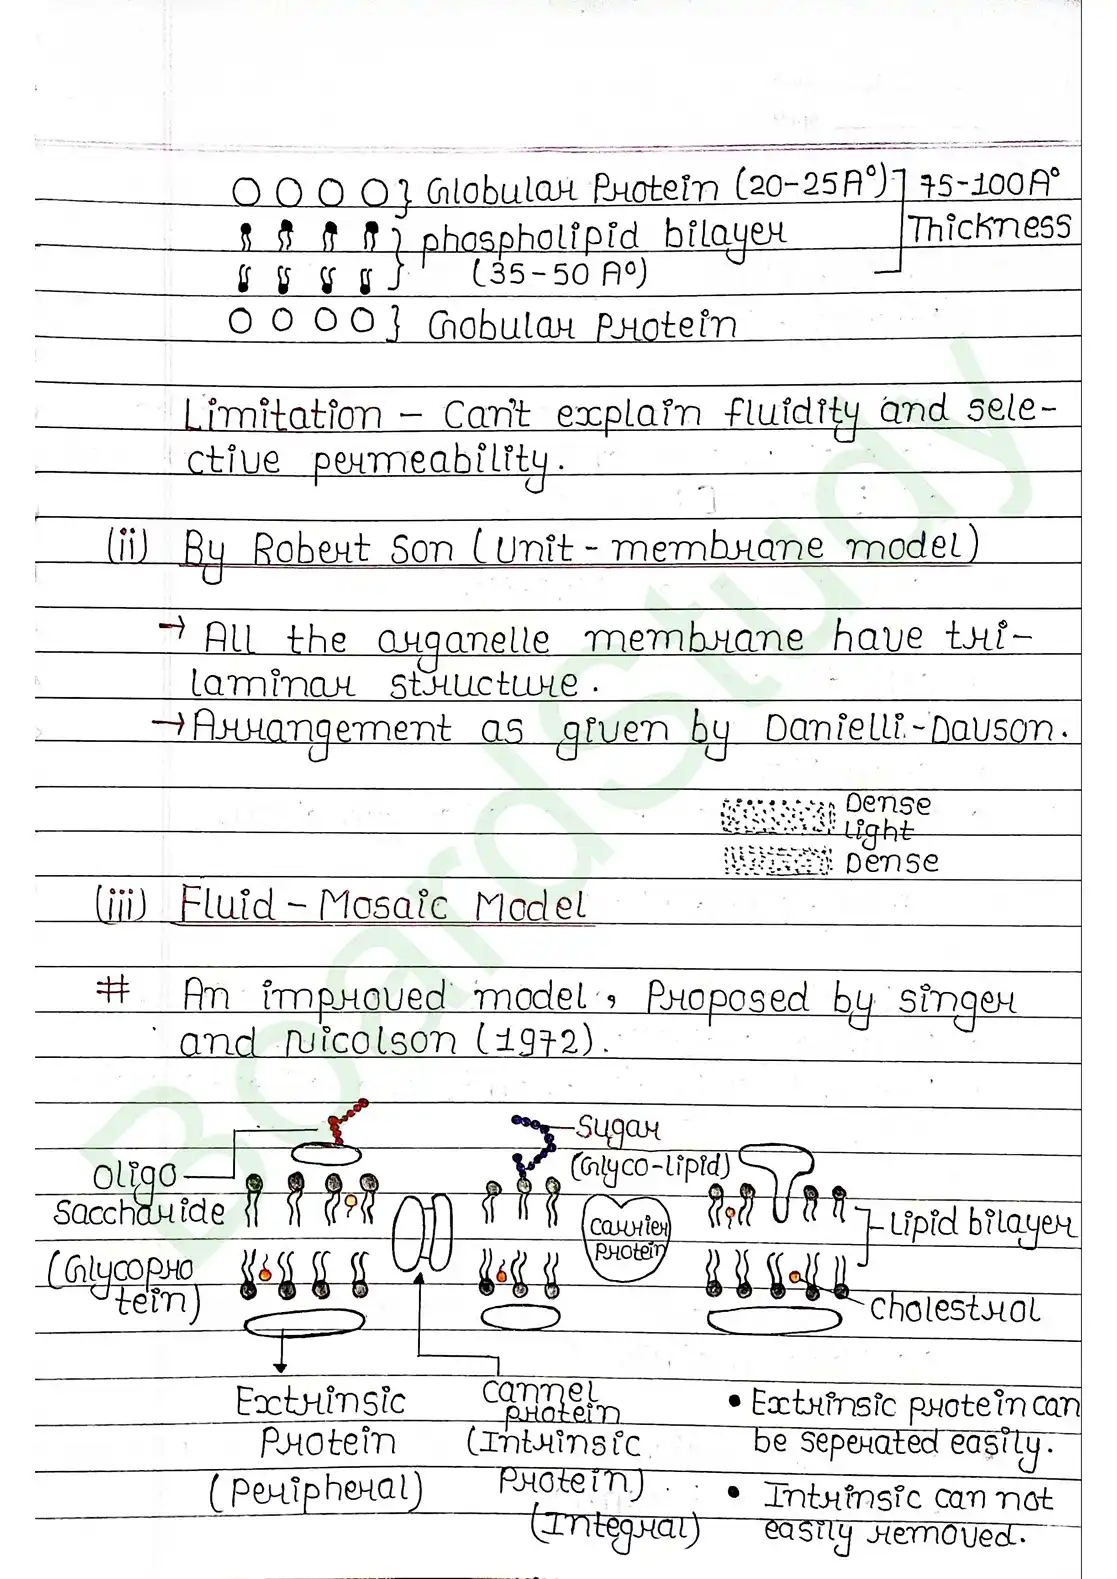 Globular Protein (20-25A°)
75-100A°
Thickness
phospholipid bilayer
(35-50 A°)
Gobular Protein
Limitation - Can't explain fluidity and sele-
ctive permeability.
(ii) By Robert Son (Unit-membrane model)
→ All the organelle membrane have tri-
laminar structure.
→ Arrangement as given by Danielli-Davson.
Dense
Light
Dense
(iii) Fluid-Mosaic Model
# An improved model, Proposed by singer
and Nicolson (1972).
Oligo
Saccharide
(Glycopro
tein)
Sugar
(Glyco-lipid)
Carrier
Protein
Lipid bilayer
Cholestrol
Extrinsic
Protein
(Peripheral)
Cannel
protein
(Intrinsic
Protein)
(Integral)
• Extrinsic protein can
be seperated easily.
• Intrinsic can not
easily removed.
BoardStudy